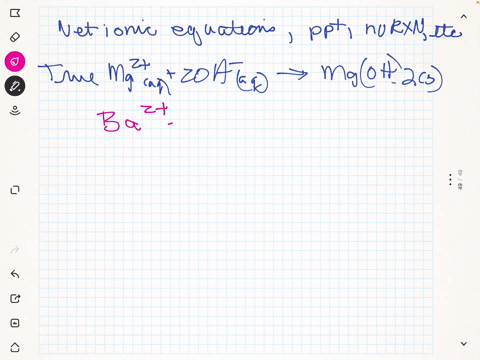 Net ionic equations, ppt, no RXN, etc
True Mg²⁺(aq) + 2OH⁻(aq) → Mg(OH)2(s)
Ba²⁺